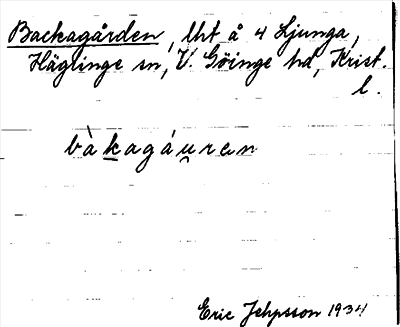 Backagården, lht å 4 Ljunga,
Häglinge sn, V. Göinge hd, Krist.
l.
bàkagáu̯ren
Eric Jehpsson 1934